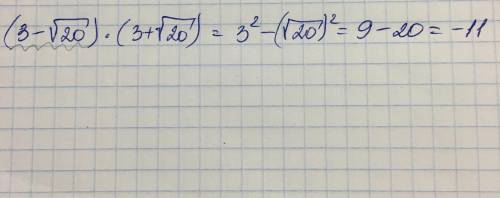 (3-√20)·(3+√20) = 3²-(√20)² = 9-20 = -11